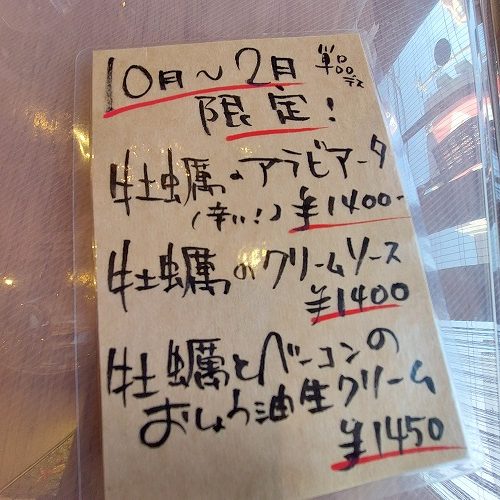 10月〜2月 単品デス
限定!
牡蠣のアラビアータ
(辛い!) ¥1400-
牡蠣のクリームソース
¥1400
牡蠣とベーコンの
おしょう油生クリーム
¥1450